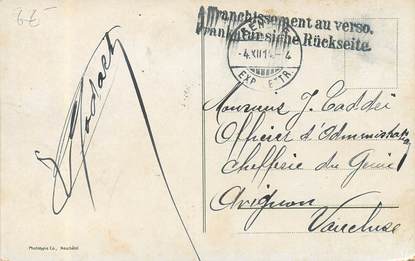 6€
Affranchissement au verso.
Frankatur siehe Rückseite.
-4.XII.1 -4
EXP. LETTR.
Monsieur J. Taddei
Officier d'Administration
Chefferie du Génie
Avignon
Vaucluse
Phototypie Co., Neuchâtel